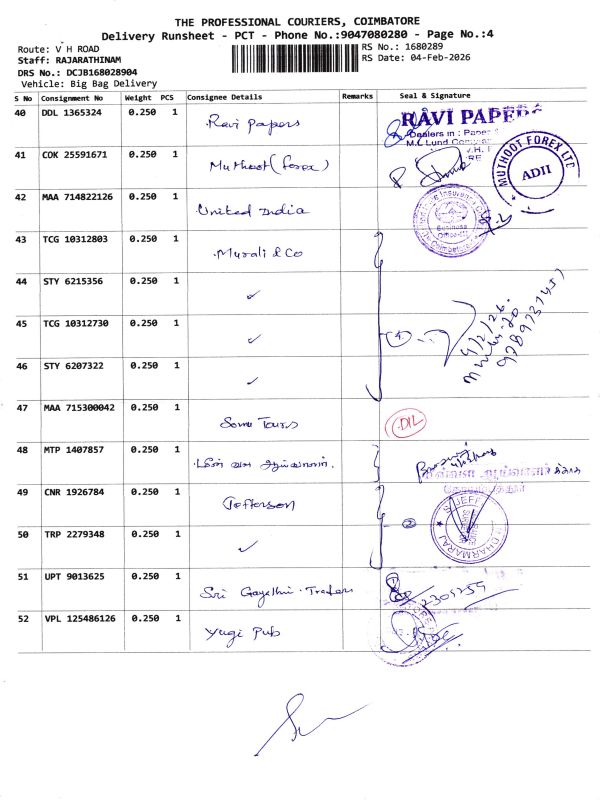 THE PROFESSIONAL COURIERS, COIMBATORE
Delivery Runsheet - PCT - Phone No.:9047080280 - Page No.:4
Route: V H ROAD
Staff: RAJARATHINAM
DRS No.: DCJB168028904
Vehicle: Big Bag Delivery
RS No.: 1680289
RS Date: 04-Feb-2026
S No Consignment No Weight PCS Consignee Details Remarks Seal & Signature
40 DDL 1365324 0.250 1 Ravi Papers RAVI PAPERS
Dealers in : Paper
41 COK 25591671 0.250 1 Muthoot (forex) MUTHOOT FOREX LTD ADII
42 MAA 714822126 0.250 1 United India
Business
43 TCG 10312803 0.250 1 Murali & Co
44 STY 6215356 0.250 1 ✓
45 TCG 10312730 0.250 1 ✓ 4
4/2/26.
9789737451
46 STY 6207322 0.250 1 ✓
47 MAA 715300042 0.250 1 Somu Tours D/L
48 MTP 1407857 0.250 1 மின் வள ஆய்வாளர்.
49 CNR 1926784 0.250 1 Jefferson JEFF DHARMARAJ
50 TRP 2279348 0.250 1 ✓ 2
51 UPT 9013625 0.250 1 Sri Gayathri Traders
52 VPL 125486126 0.250 1 Yugi Pub